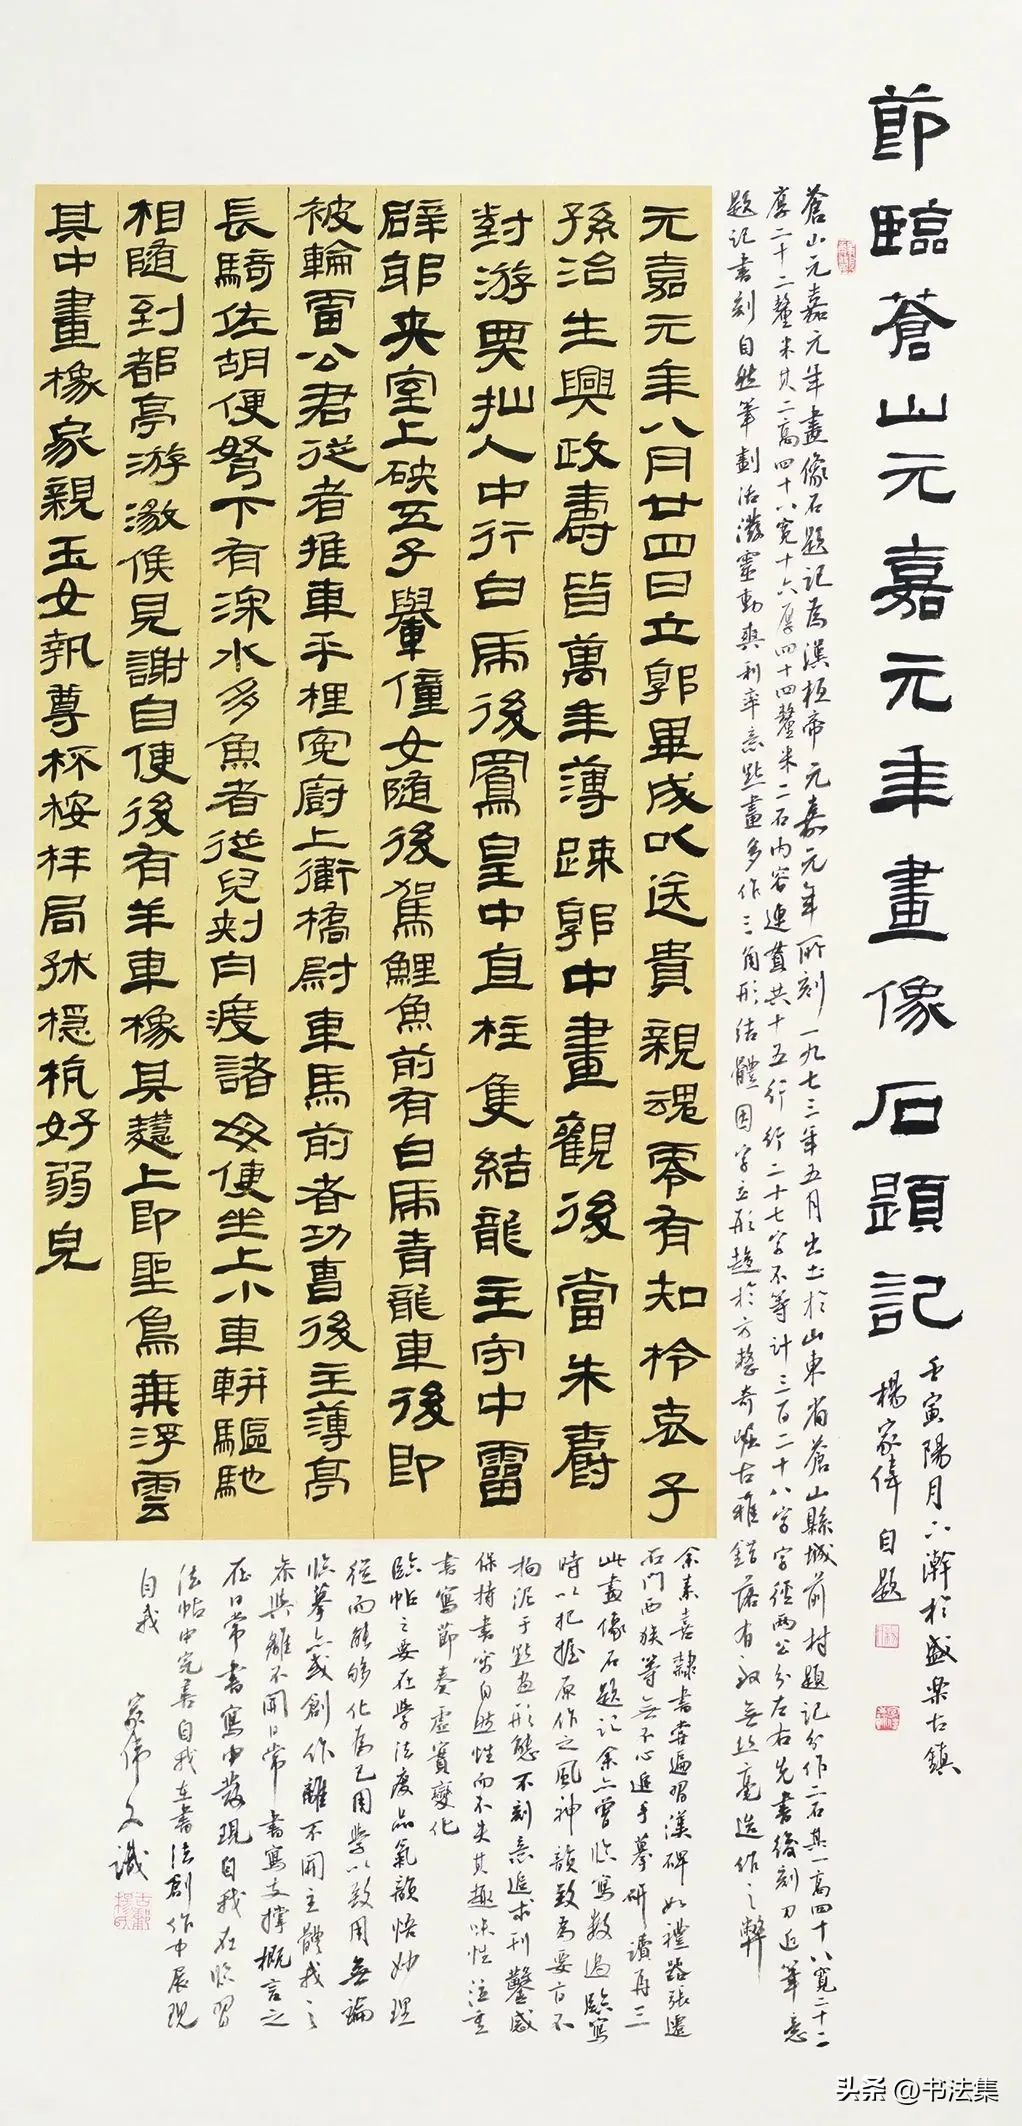 節臨蒼山元嘉元年畫像石題記
壬寅陽月小瀚於盛樂古鎮
楊家偉自題
蒼山元嘉元年畫像石題記為漢桓帝元嘉元年所刻一九七三年五月出土於山東省蒼山縣城前村題記分作二石其一高四十八寬二十二
厚二十二釐米其二高四十八寬十六厚四十四釐米二石內容連貫共十五行行二十七字不等計三百二十八字字徑兩公分左右先書後刻刀近筆意
題記書刻自然筆劃活潑靈動爽利率意點畫多作三角形結體因字立形趨於方整奇崛古雅錯落有致無絲毫造作之弊
元嘉元年八月廿四日立郭畢成以送貴親魂零有知柃哀子
孫治生興政壽皆萬年薄踈郭中畫觀後當朱爵
對游㚇抛人中行白馬後鳳皇中直柱隻結龍主守中霤
辟邪夾室上硤五子轝僮女隨後駕鯉魚前有白馬青龍車後即
被輪雷公君從者推車乎梩冤廚上衛橋尉車馬前者功曹後主薄亭
長騎佐胡便弩下有深水多魚者從兒刺舟渡諸母便坐上小車軿驅馳
相隨到都亭游徼候見謝自便後有羊車橡其槥上即聖鳥乘浮雲
其中畫橡家親玉女執尊杯桉柈局秫穩杭好弱皃
余素喜隸書嘗遍習漢碑如禮器張遷
石門西狹等無不心追手摹研讀再三
此畫像石題記余亦曾臨寫數過臨寫
時以把握原作之風神韻致為要方不
拘泥于點畫形態不刻意追求刊鑿感
保持書寫自然性而不失其趣味性注重
書寫節奏虛實變化
臨帖之要在學法度品氣韻悟妙理
從而能夠化為己用學以致用無論
臨摹亦或創作離不開主體我之
參與離不開日常書寫支撐概言之
在日常書寫中發現自我在臨習
法帖中完善自我在書法創作中展現
自我
家偉又識
头条 @书法集